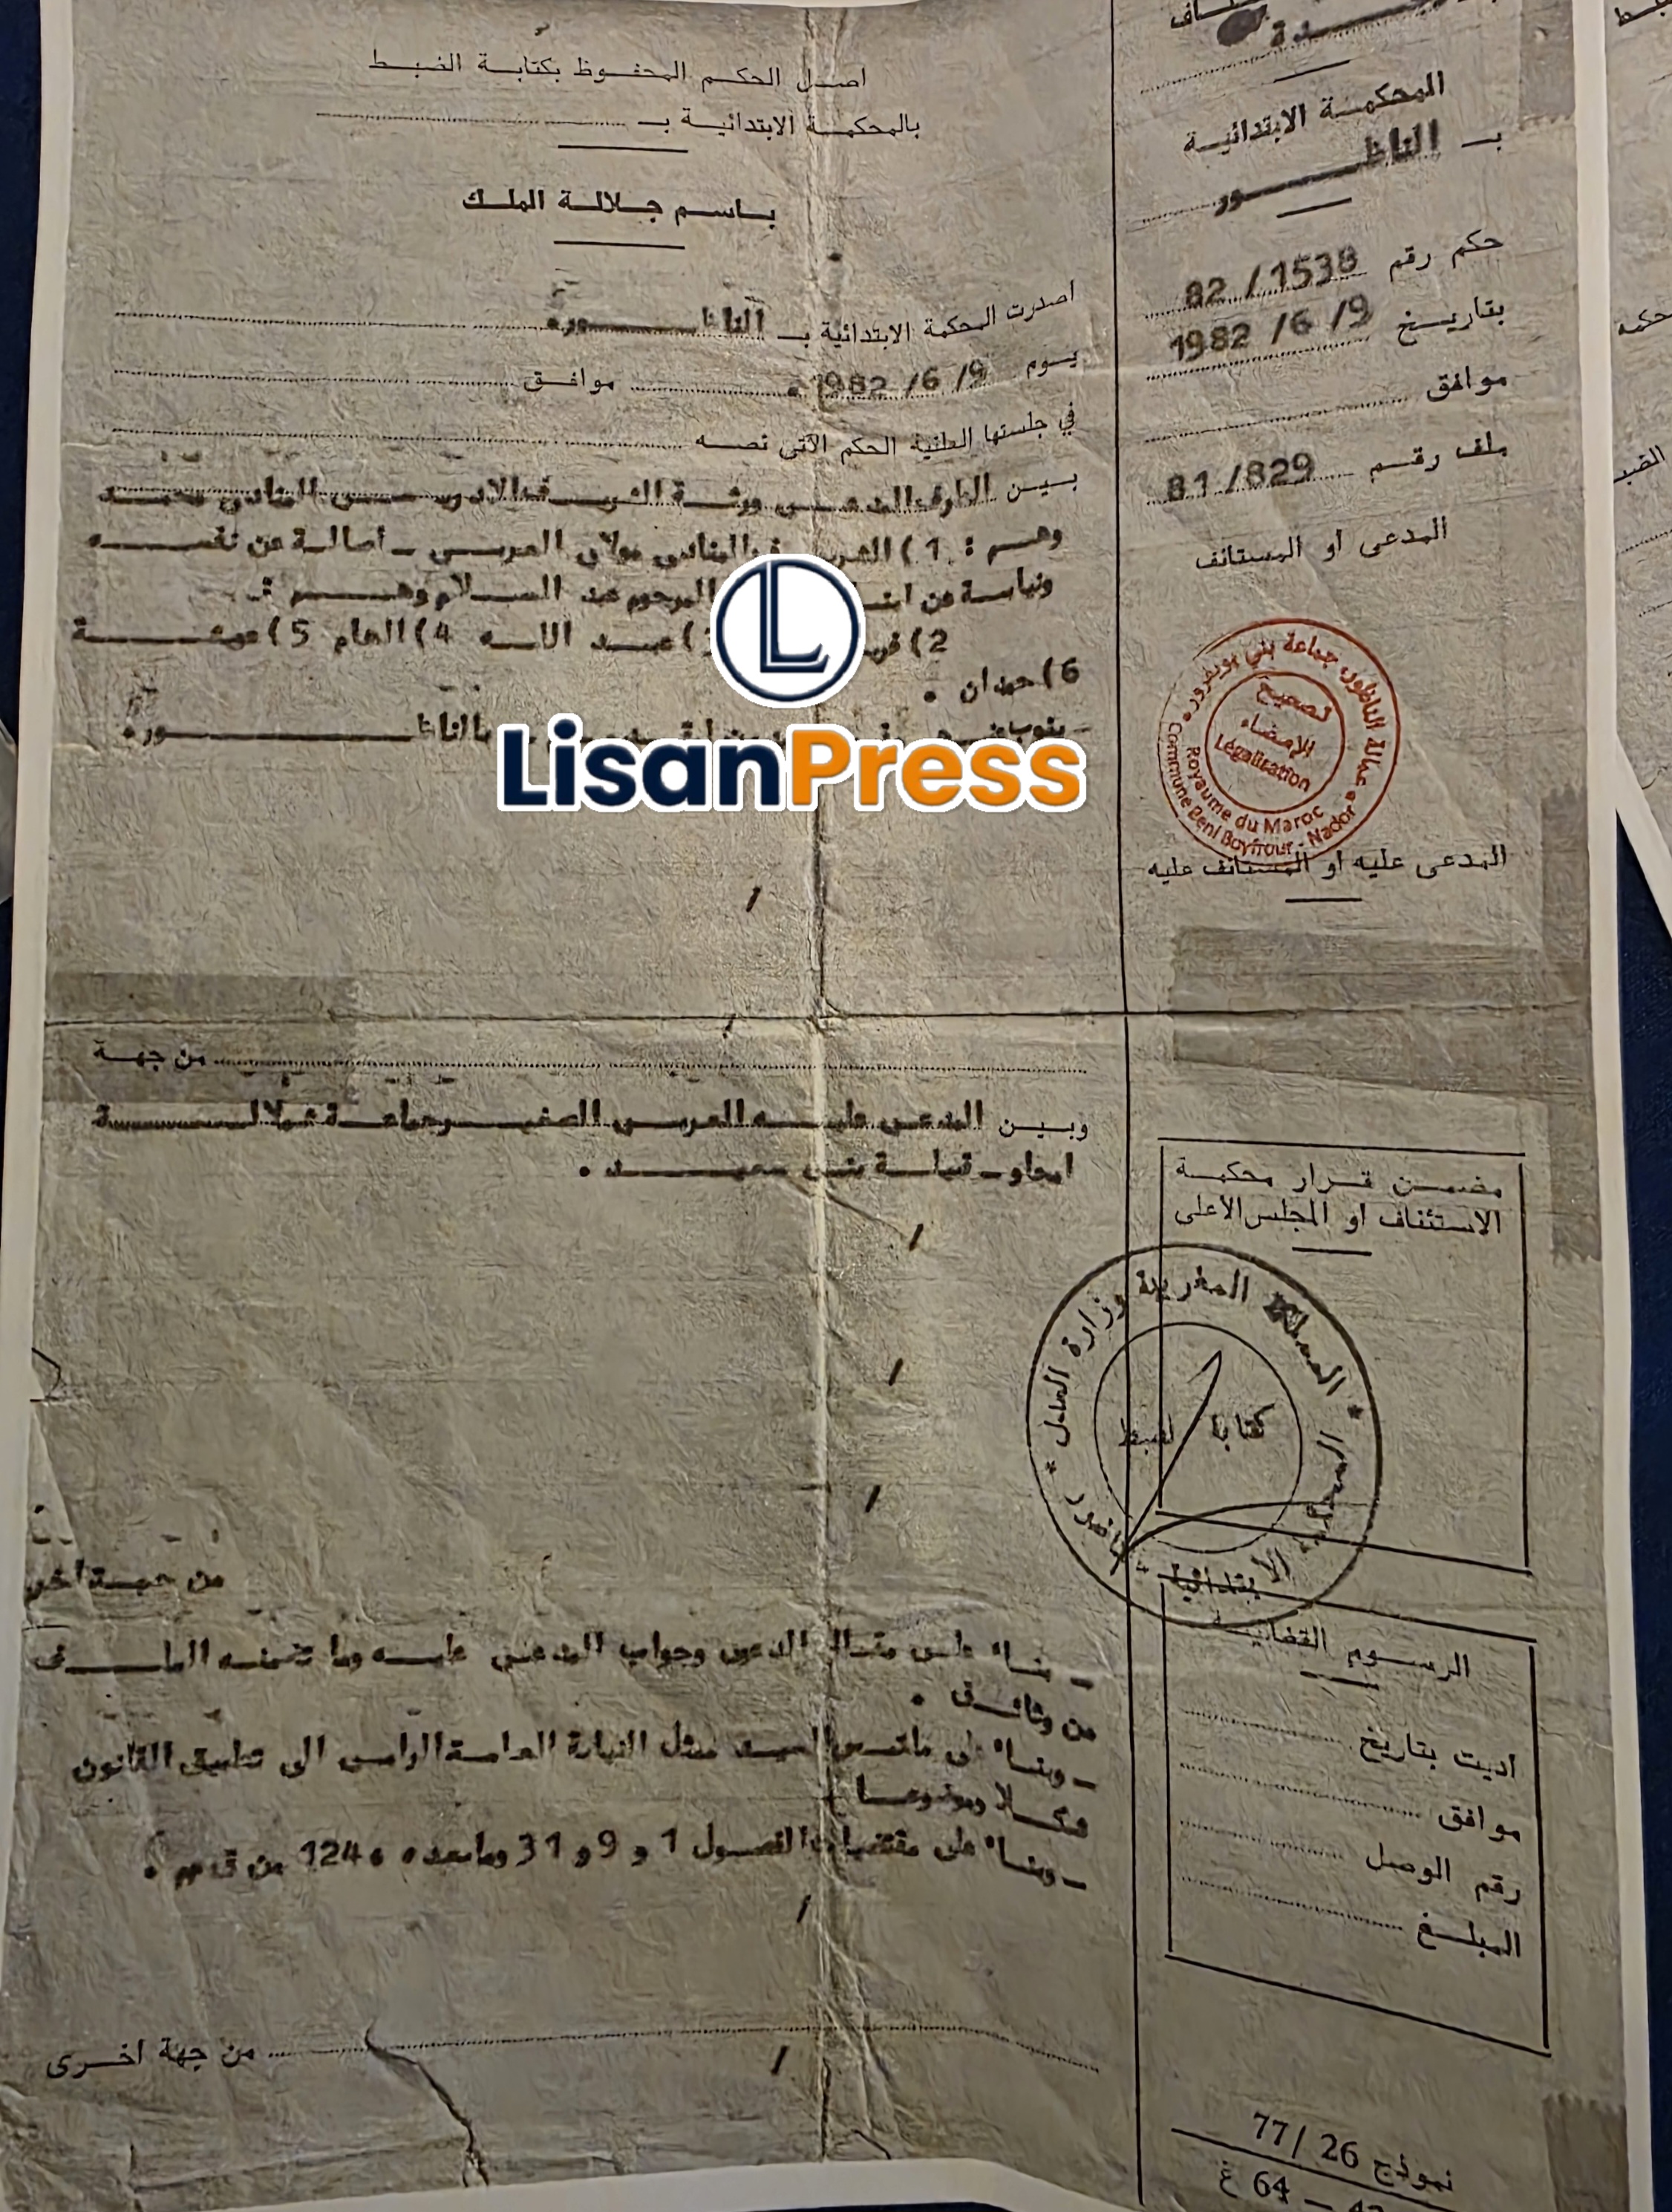 المحكمة الابتدائية
بـ الناظور
حكم رقم 82/1538
بتاريخ 1982/6/9
موافق
ملف رقم 81/829
المدعى او المستانف
تصحيح
الإمضاء
Légalisation
Royaume du Maroc
Commune Beni Boyfrour - Nador
المدعى عليه او المستانف عليه
مضمن قرار محكمة
الاستئناف او المجلس الاعلى
المملكة المغربية وزارة العدل
كتابة الضبط
الرسوم القضائية
اديت بتاريخ
موافق
رقم الوصل
المبلغ
نموذج 26 /77
اصل الحكم المحفوظ بكتابة الضبط
بالمحكمة الابتدائية بـ
باسم جلالة الملك
اصدرت المحكمة الابتدائية بـ الناظور
يوم 1982/6/9 موافق
في جلستها العلنية الحكم الآتي نصه
بين الطرف المدعي ورثة الشريف الادريسي محمد
وهم : 1) العربي مولاي العربي - اصالة عن نفسه
ونيابة عن المرحوم عبد السلام وهم :
2) عبد الاله 4) الهام 5) عوشة
6) حمدان .
بالناظور.
LisanPress
من جهة
وبين المدعى عليه العربي الصغير جماعة شملالة
امجاو - قبيلة بني سعيد .
من جهة اخرى
- بناء على مقال الدعوى وجواب المدعى عليه وما تضمنه الملف
من وثائق .
- وبناء على ملتمس السيد ممثل النيابة العامة الرامي الى تطبيق القانون
شكلا وموضوعا
- وبناء على مقتضيات الفصول 1 و 9 و 31 وما بعده ، 124 من ق م م .
من جهة اخرى